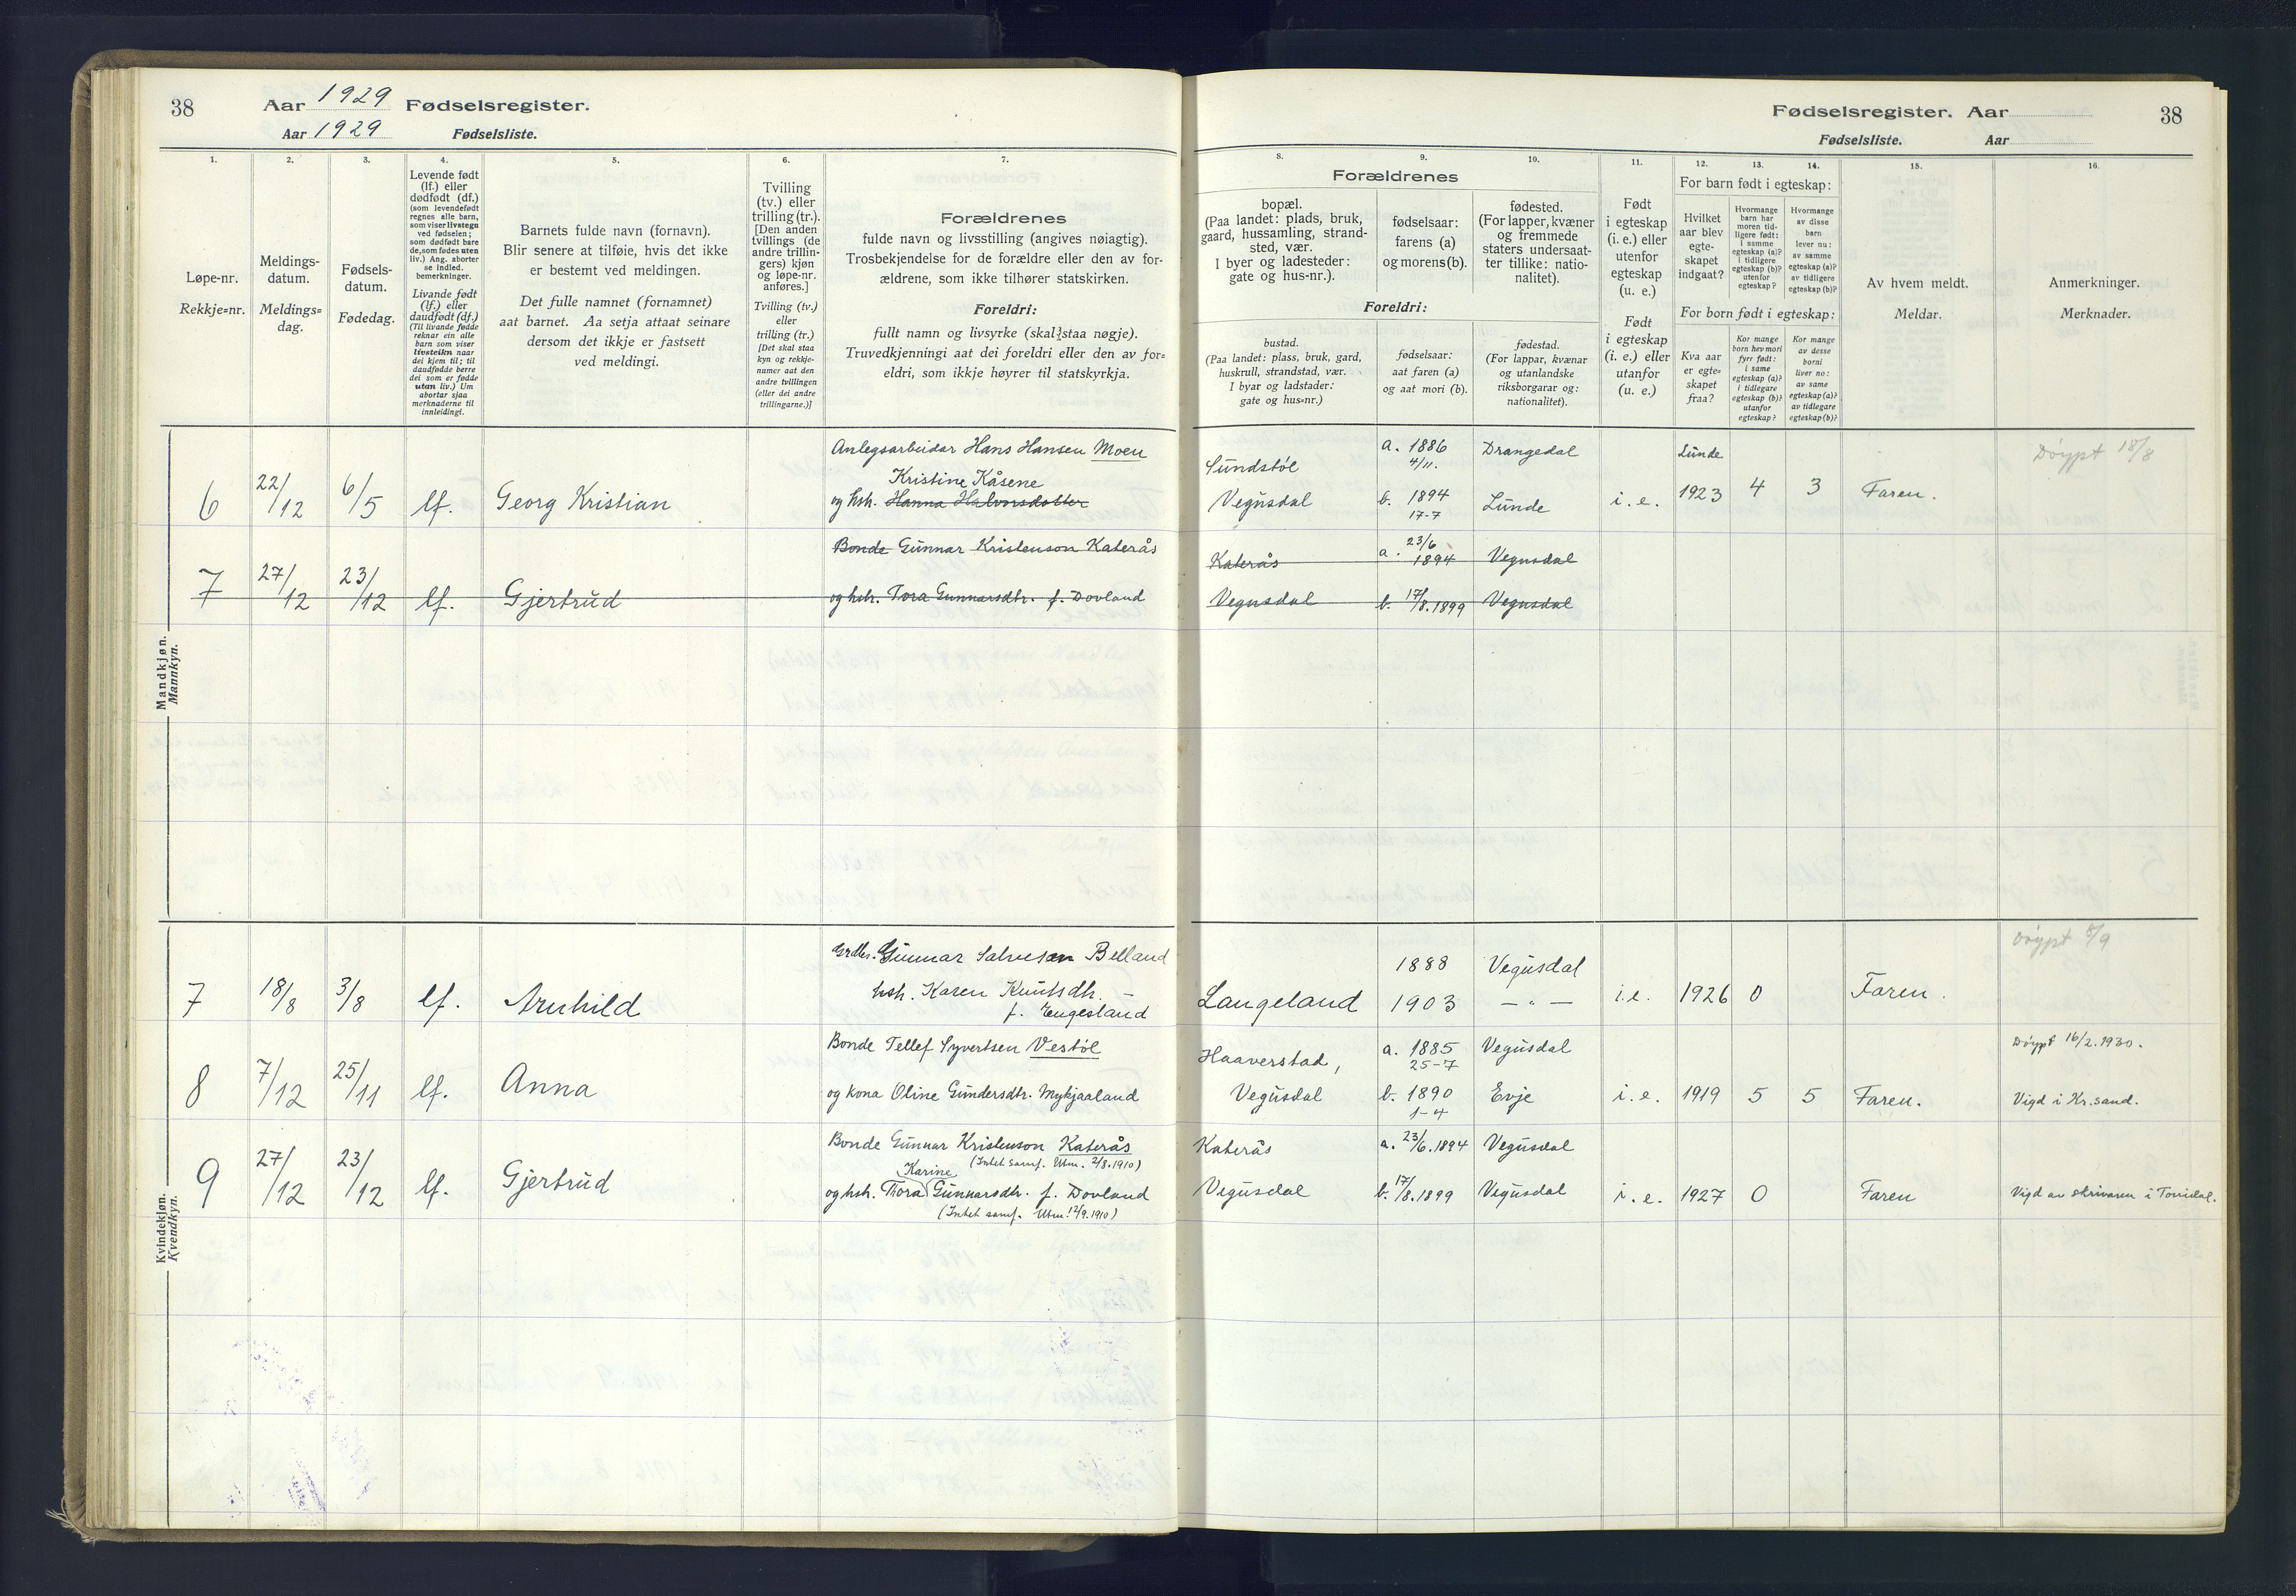 38
Aar 1929 Fødselsregister.
Aar 1929 Fødselsliste.
1.
2.
3.
4.
5.
6.
7.
Løpe-nr.
Rekkje=nr.
Meldings-
datum.
Meldings=
dag.
Fødsels-
datum.
Fødedag.
Levende født
(lf.) eller
dødfødt (df.)
(som levendefødt
regnes alle barn,
som viser livstegn
ved fødselen;
som dødfødt bare
de, som fødes uten
liv.) Ang. aborter
se indled.
bemerkninger.
Livande født
(lf.) eller
daudfødt (df.)
(Til livande fødde
reknar ein alle
barn som viser
livsteikn naar
dei kjem til; til
daudfødde berre
dei som er fødde
utan liv.) Um
abortar sjaa
merknaderne til
innleidingi.
Barnets fulde navn (fornavn).
Blir senere at tilføie, hvis det ikke
er bestemt ved meldingen.
Det fulle namnet (fornamnet)
aat barnet. Aa setja attaat seinare
dersom det ikkje er fastsett
ved meldingi.
Tvilling
(tv.) eller
trilling (tr.).
[Den anden
tvillings (de
andre trillin-
gers) kjøn
og løpe-nr.
anføres.]
Tvilling (tv.)
eller
trilling (tr.)
[Det skal staa
kyn og rekkje-
numer aat den
andre tvillingen
(eller dei andre
trillingarne.)]
Forældrenes
fulde navn og livsstilling (angives nøiagtig).
Trosbekjendelse for de forældre eller den av for-
ældrene, som ikke tilhører statskirken.
Foreldri:
fullt namn og livsyrke (skal staa nøgje).
Truvedkjenningi aat dei foreldri eller den av for=
eldri, som ikkje høyrer til statskyrkja.
Mandkjøn.
Mannkyn.
6 22/12 6/5 lf. Georg Kristian
Anlegsarbeidar Hans Hansen Moen
Kristine Kåsene
og hsh. Hanna Halvorsdotter
7 27/12 23/12 lf. Gjertrud
Bonde Gunnar Kristenson Katerås
og hsh. Tora Gunnarsdtr. f. Dovland
Kvindekjøn.
Kvendkyn.
7 18/8 3/8 lf. Arnhild
Grdbr. Gunnar Salvesen Belland
hsh. Karen Knutsdtr. –
f. Engesland
8 7/12 25/11 lf. Anna
Bonde Tellef Syvertsen Vestøl
og kona Oline Gundersdtr. Mykjaaland
9 27/12 23/12 lf. Gjertrud
Bonde Gunnar Kristenson Katerås
(Intet samf. Utm. 2/8.1910)
Karine
og hsh. Thora Gunnarsdtr. f. Dovland
(Intet samf. Utm. 12/9.1910)
Fødselsregister. Aar
38
Fødselsliste. Aar
8.
9.
10.
11.
12.
13.
14.
15.
16.
Forældrenes
bopæl.
(Paa landet: plads, bruk,
gaard, hussamling, strand-
sted, vær.
I byer og ladesteder:
gate og hus-nr.).
fødselsaar:
farens (a)
og morens (b).
fødested.
(For lapper, kvæner
og fremmede
staters undersaat-
ter tillike: natio-
nalitet).
Foreldri:
bustad.
(Paa landet: plass, bruk, gard,
huskrull, strandstad, vær.
I byar og ladstader:
gate og hus=nr.)
fødselsaar:
aat faren (a)
og aat mori (b).
fødestad.
(For lappar, kvænar
og utanlandske
riksborgarar og:
nationalitet).
Født
i egteskap
(i. e.) eller
utenfor
egteskap
(u. e.)
Født
i egteskap
(i. e.) eller
utanfor
(u. e.)
For barn født i egteskap:
Hvilket
aar blev
egte-
skapet
indgaat?
Hvormange
barn har
moren tid-
ligere født:
i samme
egteskap (a)?
i tidligere
egteskap (b)?
utenfor
egteskap?
Hvormange
av disse
barn
lever nu:
av samme
egteskap (a)?
av tidligere
egteskap (b)?
For born født i egteskap:
Kva aar
er egte=
skapet
fraa?
Kor mange
born hev mori
fyrr født:
i same
egteskap (a)?
i tidlegare
egteskap (b)?
utanfor
egteskap?
Kor mange
av desse
borni
liver no:
av same
egteskap (a)?
av tidlegare
egteskap (b)?
Av hvem meldt.
Meldar.
Anmerkninger.
Merknader.
Sundstöl a. 1886 Drangedal Lunde Döypt 18/8
4/11.
Vegusdal b. 1894 Lunde i. e. 1923 4 3 Faren.
17-7
Katerås a. 23/6 1894 Vegusdal
Vegusdal b. 17/8.1899 Vegusdal
Döypt 8/9
1888 Vegusdal
Langeland 1903 — " — i.e. 1926 0 Faren.
Haaverstad, a. 1885 Vegusdal Döypt 16/2.1930.
25-7
Vegusdal b. 1890 Evje i. e. 1919 5 5 Faren. Vigd i Kr.sand.
1-4
Katerås a. 23/6.1894 Vegusdal
Vegusdal b. 17/8.1899 Vegusdal i. e. 1927 0 Faren Vigd av skrivaren i Torridal.